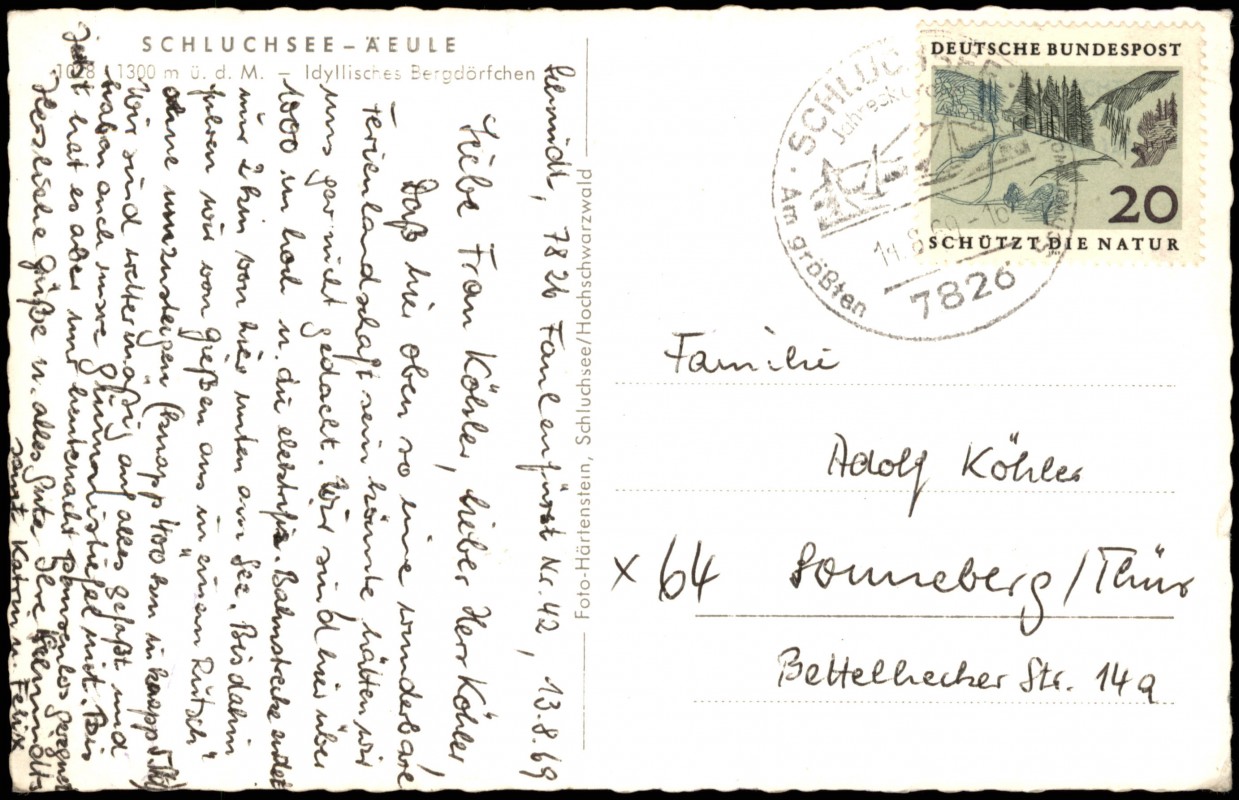 SCHLUCHSEE – ÄEULE
1028 / 1300 m ü. d. M. – Idyllisches Bergdörfchen
7826 Faulenfürst Nr. 42, 13.8.69
Liebe Frau Köhler, lieber Herr Köhler,
Daß hier oben so eine wunderbare
Ferienlandschaft sein könnte hätten wir
uns gar nicht gedacht. Wir sind hier über
1000 m hoch u. die elektrifiz. Bahnstrecke endet
nur 2 km von hier unten am See. Bis dahin
fuhren wir von Gießen aus in einem „Rutsch“
ohne umzusteigen (knapp 400 km in knapp 5 Std)
Wir sind wettermäßig auf alles gefaßt und
haben auch unsre Gummistiefel mit. Bis
jetzt hat es aber nur heute nacht pausenlos geregnet
Herzliche Grüße u. alles Gute Ihre Helmholts
samt Katrin u. Felix
Foto-Härtenstein, Schluchsee/Hochschwarzwald
SCHLUCHSEE
Am größten
7826
DEUTSCHE BUNDESPOST
20
SCHÜTZT DIE NATUR
Familie
Adolf Köhler
x 64 Sonneberg/Thür
Bettelhecker Str. 14a